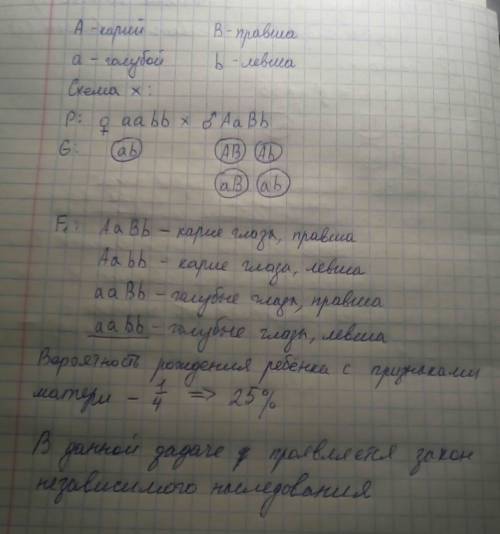 A - карий B - правша
a - голубой b - левша
Схема x:
P: ♀ aabb x ♂ AaBb
G: ab AB Ab
aB ab
F₁: AaBb - карие глаза, правша
Aabb - карие глаза, левша
aaBb - голубые глаза, правша
aaBb - голубые глаза, левша
Вероятность рождения ребёнка с признаками
матери - 1/4 => 25%
В данной дадаче проявляется закон
независимого наследования